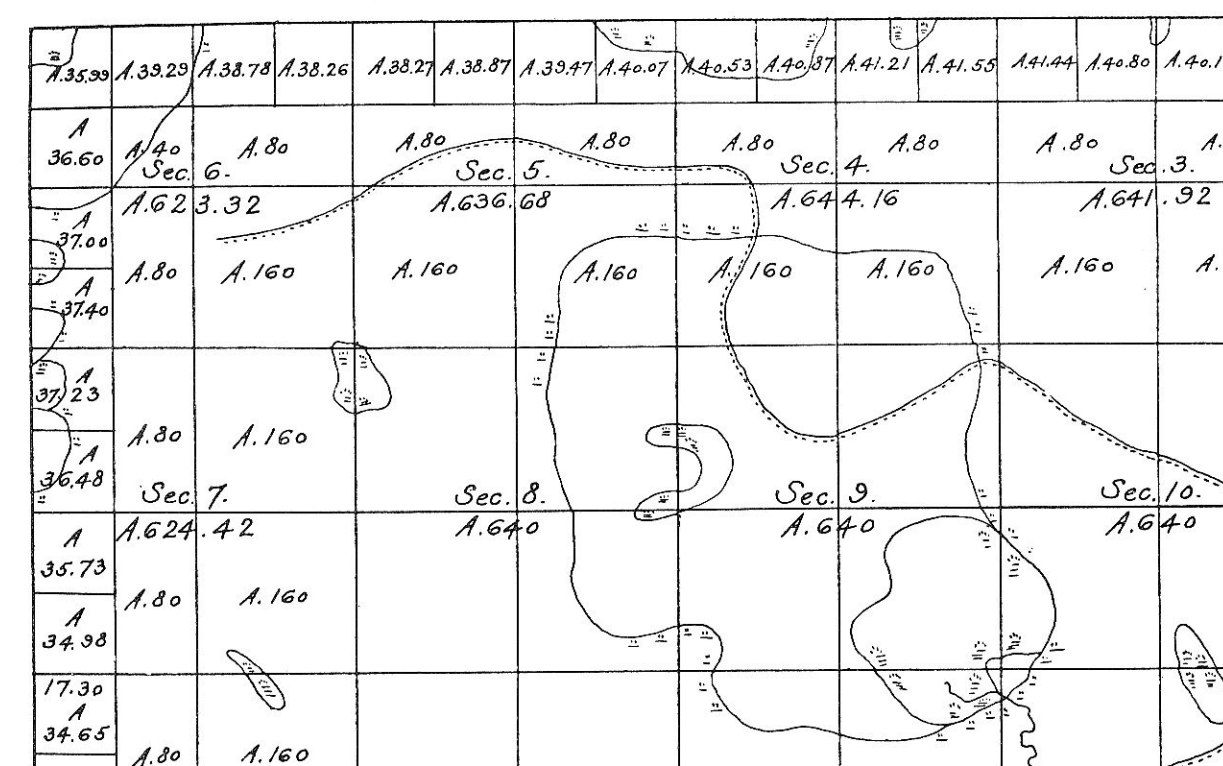 A.35.99 A.39.29 A.38.78 A.38.26 A.38.27 A.38.87 A.39.47 A.40.07 A.40.53 A.40.87 A.41.21 A.41.55 A.41.44 A.40.80 A.40.1
A
36.60 A.40 A.80 A.80 A.80 A.80 A.80 A.80 A.
Sec. 6. Sec. 5. Sec. 4. Sec. 3.
A.623.32 A.636.68 A.644.16 A.641.92
A
37.00
A.80 A.160 A.160 A.160 A.160 A.160 A.160 A.
A
37.40
A
37.23
A.80 A.160
A
36.48
Sec. 7. Sec. 8. Sec. 9. Sec. 10.
A.624.42 A.640 A.640 A.640
A
35.73
A.80 A.160
A
34.98
17.30
A
34.65
A.80 A.160